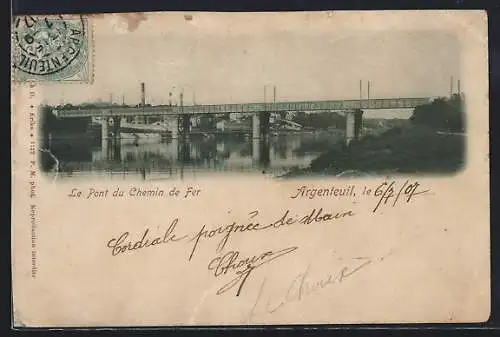 ARGENTEUIL
1122 P. M. phot. Reproduction interdite
Le Pont du Chemin de Fer
Argenteuil, le 6/7/07
Cordiale poignée de Main
Choux
Choux